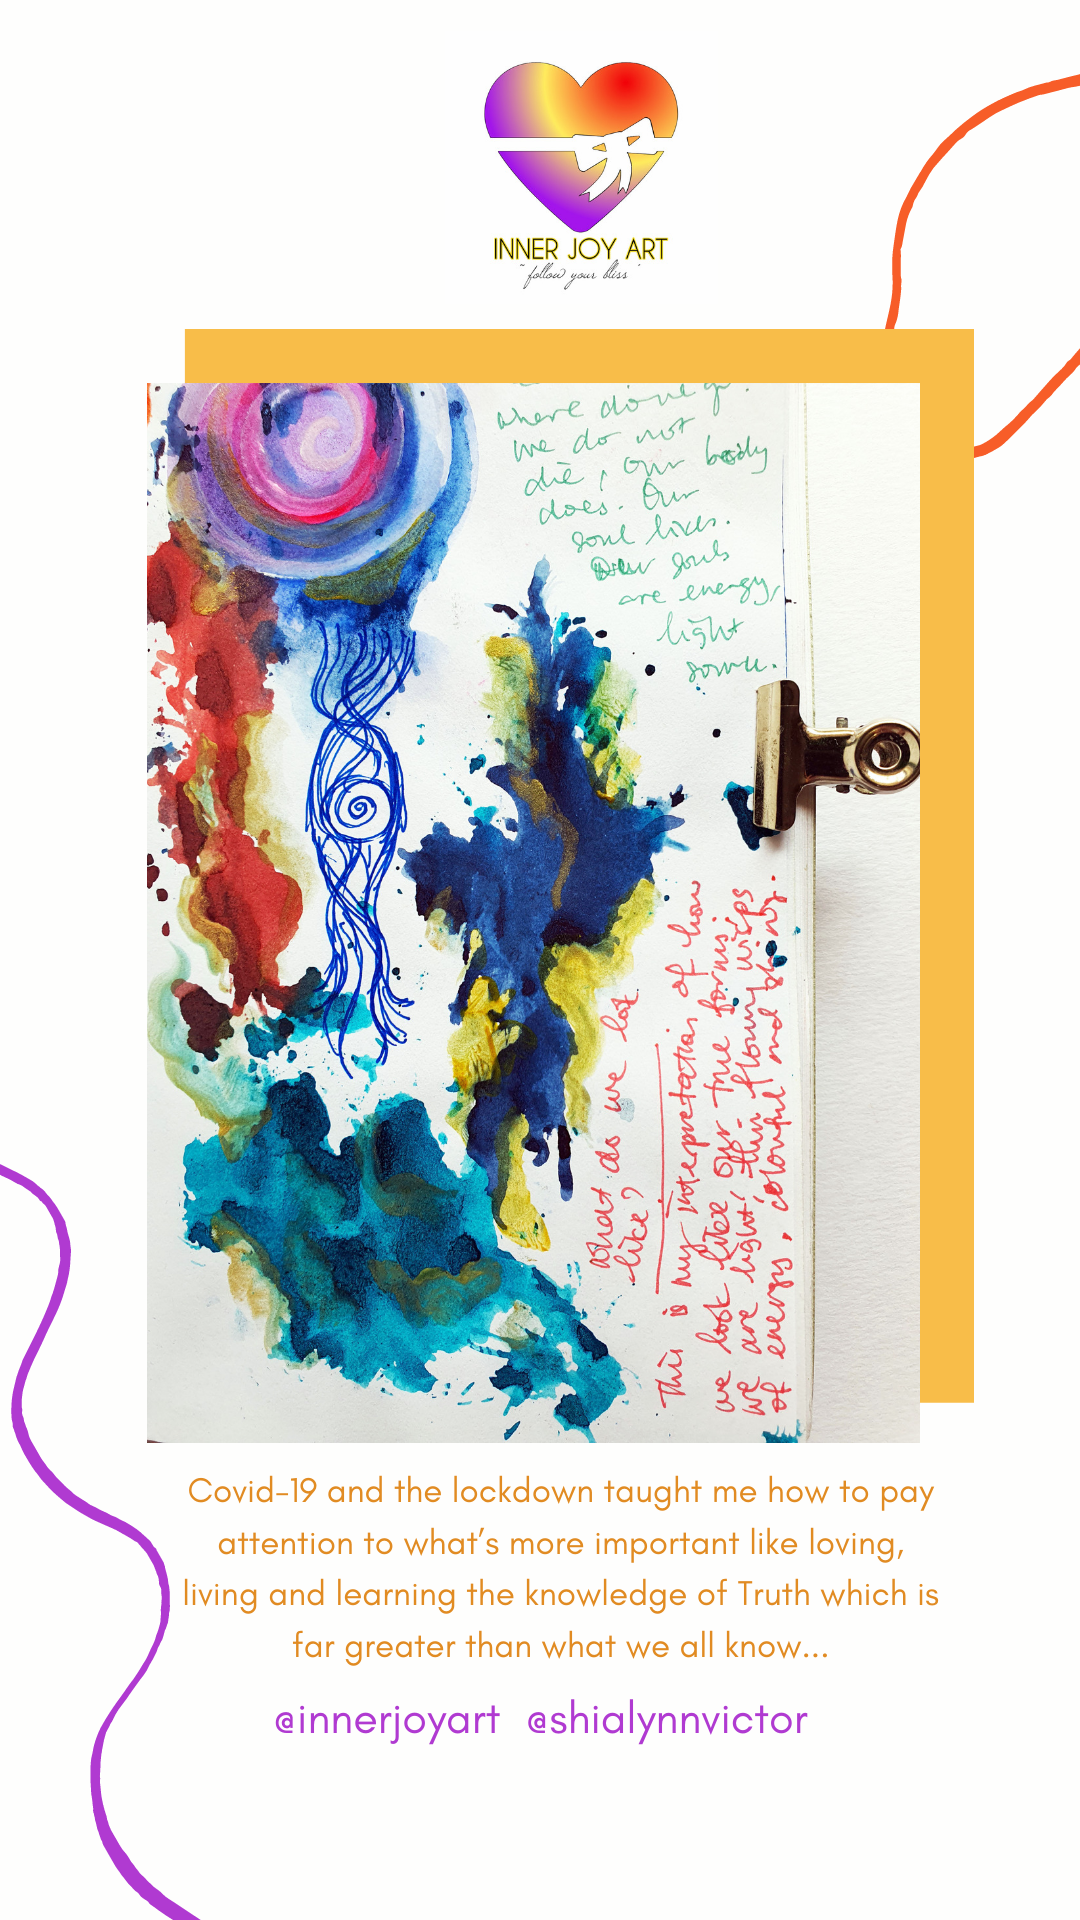 INNER JOY ART
"follow your bliss"
where do we go?
we do not
die, our body
does. Our
soul lives.
Our souls
are energy,
light
source.
What do we look
like?
This is my interpretation of how
we look like. Our true forms;
we are light, thin flowy wisps
of energy, colourful and shiny.
Covid-19 and the lockdown taught me how to pay
attention to what's more important like loving,
living and learning the knowledge of Truth which is
far greater than what we all know...
@innerjoyart @shialynnvictor